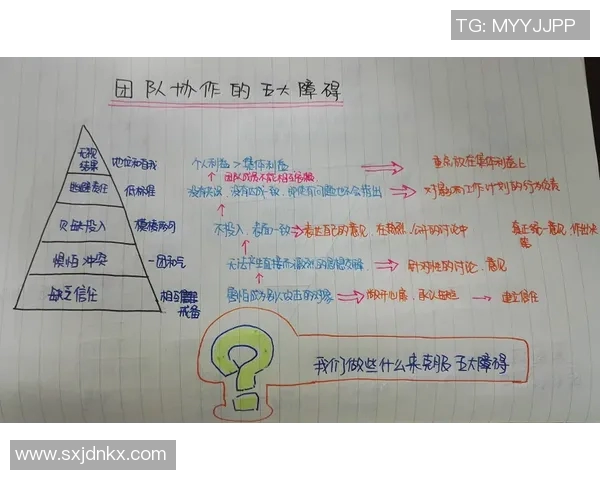 TG: MYYJJPP
团队协作的五大障碍
无视结果 地位和自我 个人利益 > 集体利益 重点放在集体利益上
团队成员不能相互
逃避责任 低标准 没有达成一致,即使有问题也不会指出 对影响工作计划的行为负责
欠缺投入 模棱两可 不投入,表面一致 表达自己的意见,在激烈、公开的讨论中 真正统一意见,作出决策
惧怕冲突 一团和气 无法产生直接而激烈的思想交锋 针对性的讨论、意见
缺乏信任 相互戒备 害怕成为别人攻击的对象 敞开心扉,承认缺点 建立信任
我们做些什么来克服五大障碍
www.sxjdnkx.com